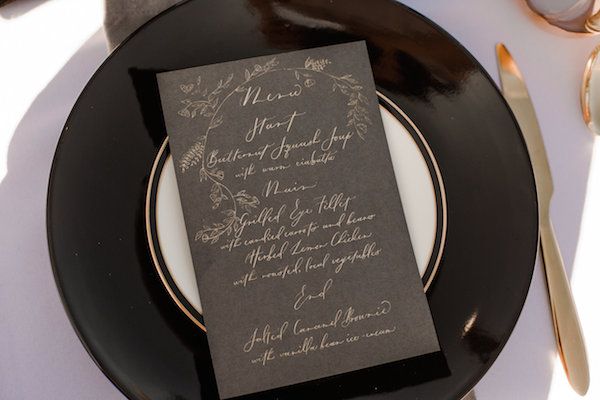 Menu
Start
Butternut Squash Soup
with warm ciabatta
Main
Grilled Eye Fillet
with candied carrots and beans
Herbed Lemon Chicken
with roasted, local vegetables
End
Salted Caramel Brownie
with vanilla bean ice-cream